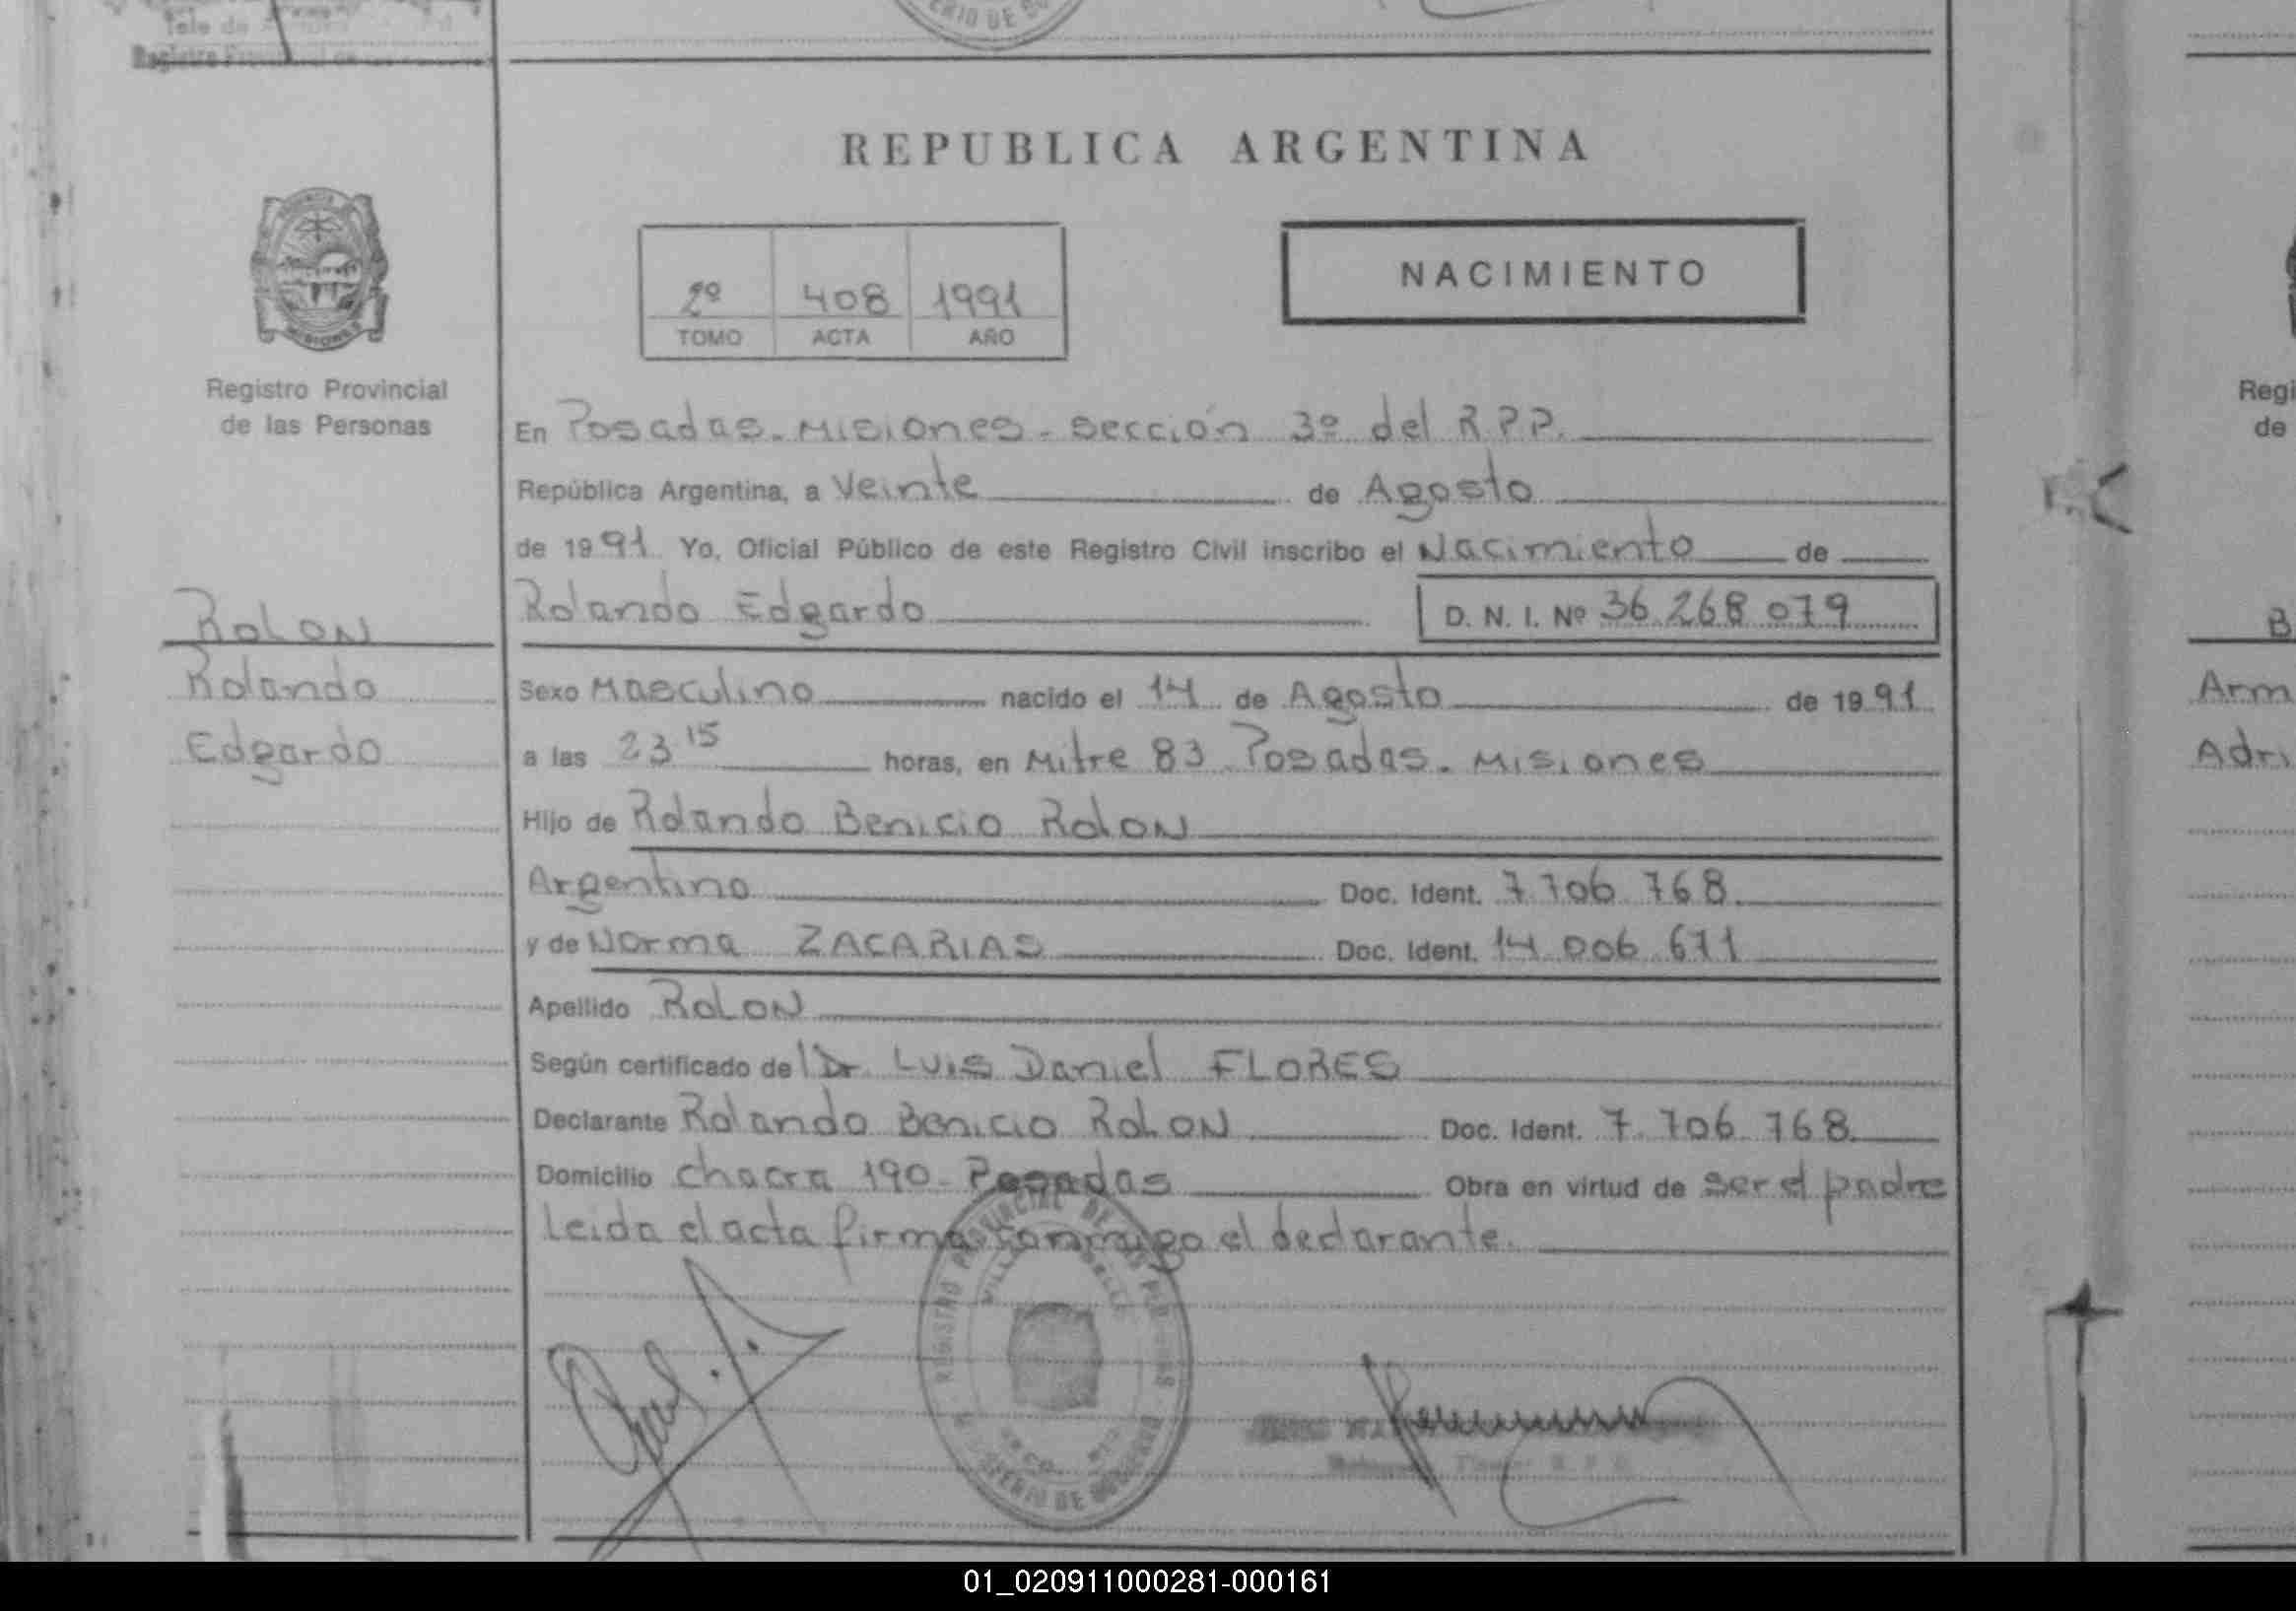 REPUBLICA ARGENTINA
2º 408 1991
TOMO ACTA AÑO
NACIMIENTO
Registro Provincial
de las Personas
ROLON
Rolando
Edgardo
En Posadas. Misiones. Sección 3º del R.P.P.
República Argentina, a Veinte de Agosto
de 1991 Yo, Oficial Público de este Registro Civil inscribo el Nacimiento de
Rolando Edgardo D. N. I. Nº 36.268.079
Sexo Masculino nacido el 14 de Agosto de 1991
a las 23 15 horas, en Mitre 83 Posadas. Misiones
Hijo de Rolando Benicio ROLON
Argentino Doc. Ident. 7.706.768
y de Norma ZACARIAS Doc. Ident. 14.006.671
Apellido ROLON
Según certificado del Dr. Luis Daniel FLORES
Declarante Rolando Benicio ROLON Doc. Ident. 7.706.768
Domicilio Chacra 190 - Posadas Obra en virtud de ser el padre
Leida el acta firma conmigo el declarante.
REGISTRO PROVINCIAL DE LAS PERSONAS
Regi
de
B
Arm
Adri
01_020911000281-000161